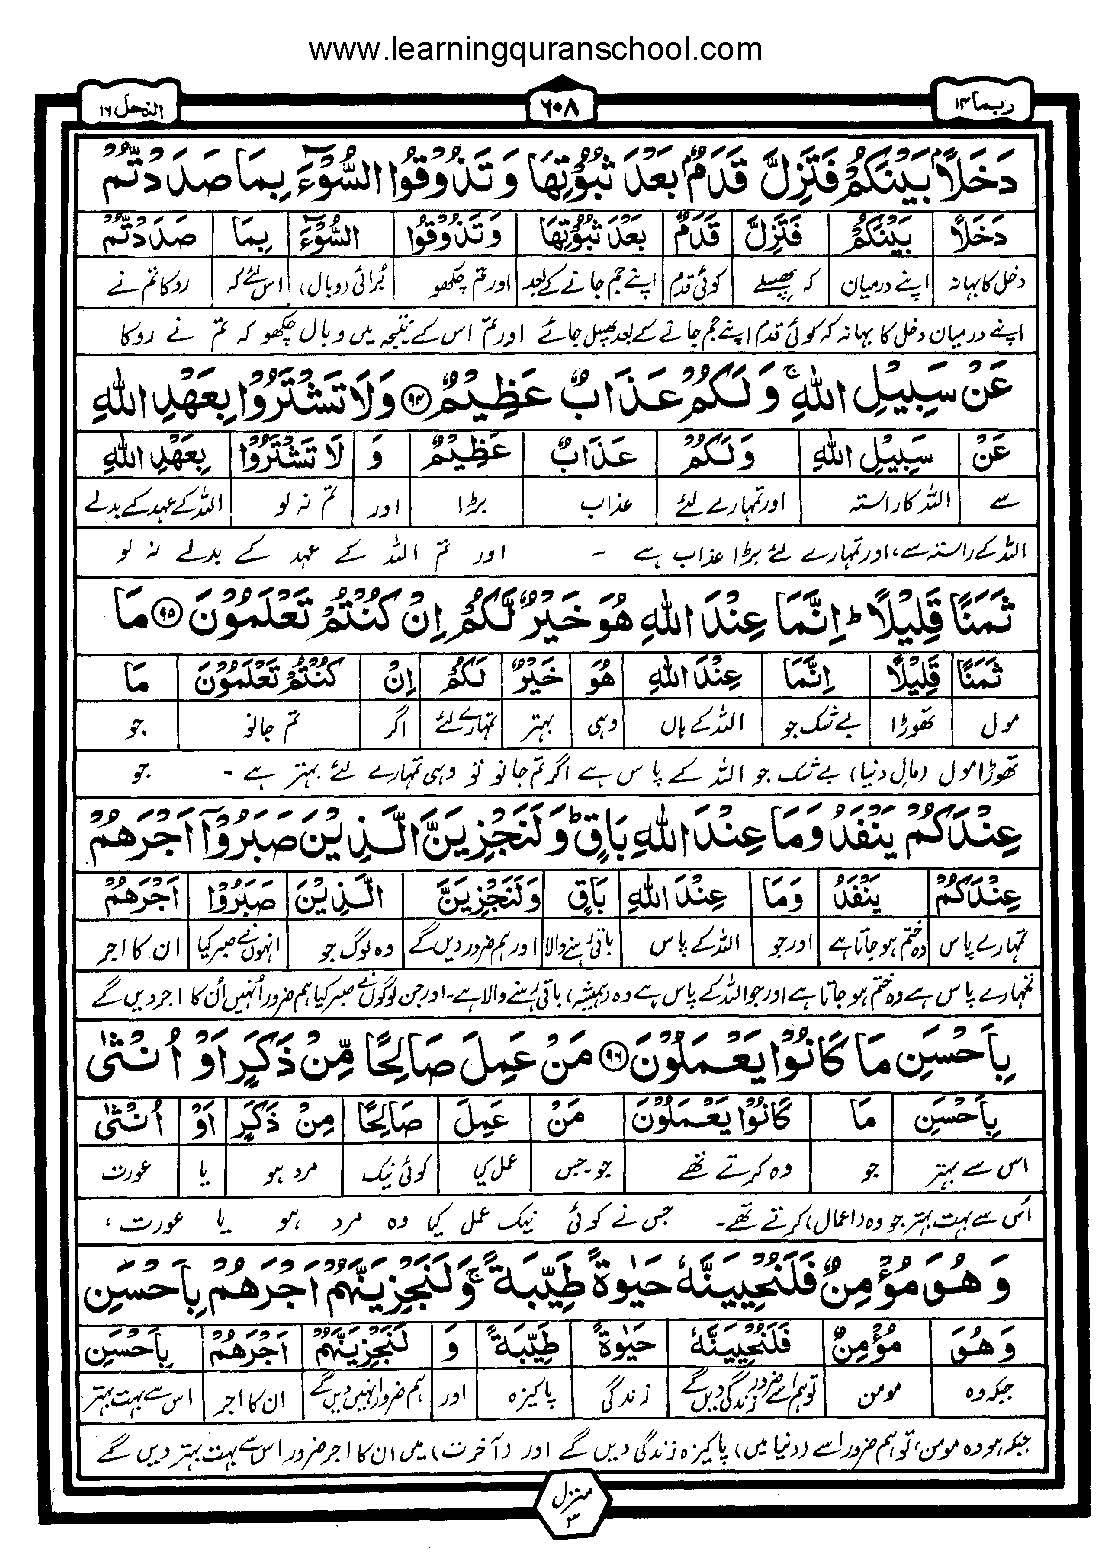 www.learningquranschool.com
ربما ۱۴
۶۰۸
النحل ۱۶
دَخَلًاۢ بَيْنَكُمْ فَتَزِلَّ قَدَمٌۢ بَعْدَ ثُبُوْتِهَا وَتَذُوْقُوا السُّوْٓءَ بِمَا صَدَدْتُّمْ
دَخَلًاۢ بَيْنَكُمْ فَتَزِلَّ قَدَمٌۢ بَعْدَ ثُبُوْتِهَا وَتَذُوْقُوا السُّوْٓءَ بِمَا صَدَدْتُّمْ
دخل کا بہانہ اپنے درمیان کہ پھسلے کوئی قدم اپنے جم جانے کے بعد اور تم چکھو بُرائی (وبال) اس لئے کہ روکا تم نے
اپنے درمیان دخل کا بہانہ کہ کوئی قدم اپنے جم جانے کے بعد پھسل جائے اور تم اس کے نتیجہ میں وبال چکھو کہ تم نے روکا
عَنْ سَبِيْلِ اللهِ ۚ وَلَكُمْ عَذَابٌ عَظِيْمٌ ﴿۹۴﴾ وَلَا تَشْتَرُوْا بِعَهْدِ اللهِ
عَنْ سَبِيْلِ اللهِ وَلَكُمْ عَذَابٌ عَظِيْمٌ وَ لَا تَشْتَرُوْا بِعَهْدِ اللهِ
سے اللہ کا راستہ اور تمہارے لئے عذاب بڑا اور تم نہ لو اللہ کے عہد کے بدلے
اللہ کے راستہ سے، اور تمہارے لئے بڑا عذاب ہے ۔ اور تم اللہ کے عہد کے بدلے نہ لو
ثَمَنًا قَلِيْلًا ؕ اِنَّمَا عِنْدَ اللهِ هُوَ خَيْرٌ لَّكُمْ اِنْ كُنْتُمْ تَعْلَمُوْنَ ﴿۹۵﴾ مَا
ثَمَنًا قَلِيْلًا اِنَّمَا عِنْدَ اللهِ هُوَ خَيْرٌ لَّكُمْ اِنْ كُنْتُمْ تَعْلَمُوْنَ مَا
مول تھوڑا بے شک جو اللہ کے ہاں وہی بہتر تمہارے لئے اگر تم جانو جو
تھوڑا مول (مالِ دنیا) بے شک جو اللہ کے پاس ہے اگر تم جانو تو وہی تمہارے لئے بہتر ہے ۔ جو
عِنْدَكُمْ يَنْفَدُ وَمَا عِنْدَ اللهِ بَاقٍ ؕ وَلَنَجْزِيَنَّ الَّذِيْنَ صَبَرُوْٓا اَجْرَهُمْ
عِنْدَكُمْ يَنْفَدُ وَمَا عِنْدَ اللهِ بَاقٍ وَلَنَجْزِيَنَّ الَّذِيْنَ صَبَرُوْا اَجْرَهُمْ
تمہارے پاس وہ ختم ہو جاتا ہے اور جو اللہ کے پاس باقی رہنے والا اور ہم ضرور دیں گے وہ لوگ جو انہوں نے صبر کیا ان کا اجر
تمہارے پاس ہے وہ ختم ہو جاتا ہے اور جو اللہ کے پاس ہے وہ (ہمیشہ) باقی رہنے والا ہے۔ اور جن لوگوں نے صبر کیا ہم ضرور اُنہیں اُن کا اجر دیں گے
بِاَحْسَنِ مَا كَانُوْا يَعْمَلُوْنَ ﴿۹۶﴾ مَنْ عَمِلَ صَالِحًا مِّنْ ذَكَرٍ اَوْ اُنْثٰى
بِاَحْسَنِ مَا كَانُوْا يَعْمَلُوْنَ مَنْ عَمِلَ صَالِحًا مِنْ ذَكَرٍ اَوْ اُنْثٰى
اس سے بہتر جو وہ کرتے تھے جو۔جس عمل کیا کوئی نیک مرد ہو یا عورت
اُس سے بہت بہتر جو وہ (اعمال) کرتے تھے۔ جس نے کوئی نیک عمل کیا وہ مرد ہو یا عورت ،
وَهُوَ مُؤْمِنٌ فَلَنُحْيِيَنَّهٗ حَيٰوةً طَيِّبَةً ۚ وَلَنَجْزِيَنَّهُمْ اَجْرَهُمْ بِاَحْسَنِ
وَهُوَ مُؤْمِنٌ فَلَنُحْيِيَنَّهٗ حَيٰوةً طَيِّبَةً وَ لَنَجْزِيَنَّهُمْ اَجْرَهُمْ بِاَحْسَنِ
جبکہ وہ مومن تو ہم اسے ضرور زندگی دیں گے زندگی پاکیزہ اور ہم ضرور انہیں دیں گے ان کا اجر اس سے بہت بہتر
جبکہ ہو وہ مومن، تو ہم ضرور اسے (دنیا میں) پاکیزہ زندگی دیں گے اور (آخرت) میں ان کا اجر ضرور اس سے بہت بہتر دیں گے
منزل ۳